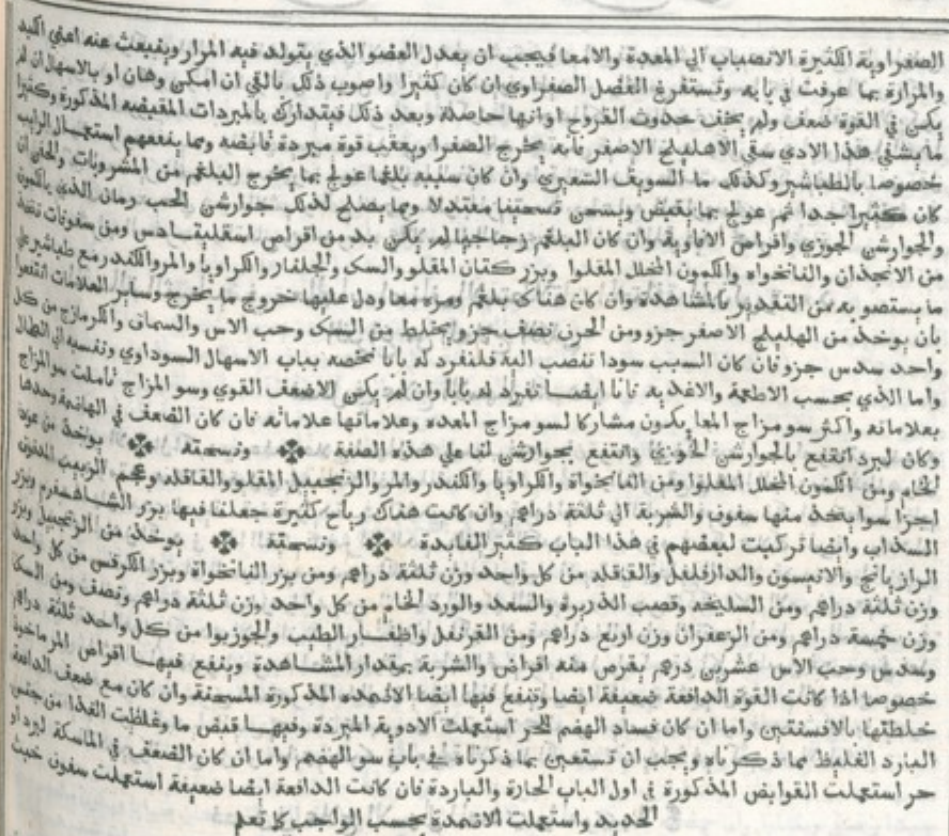 الصفراوية الكثيرة الانصباب الي المعدة والامعا فيجب ان يعدل العضو الذي يتولد فيه المرار وينبعث عنه اعني الكبد
والمرارة بما عرفت في بابه وتستفرغ الفضل الصفراوي ان كان كثيرا واصوب ذلك بالقي ان امكن وهان او بالاسهال ان لم
يكن في القوة ضعف ولم يخف حدوث القروح او انها حاصلة وبعد ذلك فيتدارك بالمبردات المقبضه المذكورة وكثيرا
ما يشفي هذا الاذي سقي الاهليلج الاصفر فانه يخرج الصفرا ويعقب قوة مبردة قابضه ومما ينفعهم استعمال الرايب
خصوصا بالطباشير وكذلك ما السويق الشعيري وان كان سببه بلغما عولج بما يخرج البلغم من المشروبات والحقن ان
كان كثيرا جدا ثم عولج بما يقبض ويسخن تسخينا معتدلا ومما يصلح لذلك جوارشن الحب رمان الذي بالكمون
والجوارشن الجوزي واقراص الافاوية وان كان البلغم زجاجيا لم يكن بد من اقراص اسقليقادس ومن سفوفات تتخذ
من الانجذان والنانخواه والكمون المخلل المقلوا وبزر كتان المقلو والسك والجلنار والكراويا والمر والكندر مع طباشير علي
ما يستصوبه من التقدير بالمشاهدة وان كان هناك بلغم ومره معا ودل عليها خروج ما يخرج وساير العلامات انتفعوا
بان يوخذ من الهليلج الاصفر جزو ومن الحرف نصف جزو يخلط من السك وحب الاس والسماق والكزمازج من كل
واحد سدس جزو فان كان السبب سودا تنصب اليه فلنفرد له بابا نخصه بباب الاسهال السوداوي ونفسبه الي الطحال
واما الذي بحسب الاطعمة والاغذيه فانا ايضا نفرد له بابا وان لم يكن الا ضعف القوي وسو المزاج تاملت سو المزاج
بعلاماته واكثر سو مزاج المعا يكون مشاركا لسو مزاج المعده وعلاماتها علاماته فان كان الضعف في الهاضمة وحدها
وكان لبرد انتفع بالجوارشن الخوزي وانتفع بجوارشن لنا علي هذه الصفة ونسخته يوخذ من عود
الخام ومن الكمون المخلل المقلوا ومن النانخواة والكراويا والكندر والمر والزنجبيل المقلو والقاقله وعجم الزبيب المدقوق
اجزا سوا يتخذ منها سفوف والشربة الي ثلثة دراهم وان كانت هناك رياح كثيرة جعلنا فيها بزر الشاهسفرم وبزر
السذاب وايضا تركيب لبعضهم في هذا الباب كثير الفايدة ونسخته يوخذ من الزنجبيل وبزر
الرازيانج والانيسون والدارفلفل والقاقله من كل واحد وزن ثلثة دراهم ومن بزر النانخواة وبزر الكرفس من كل واحد
وزن ثلثة دراهم ومن السليخه وقصب الذريرة والسعد والورد الخام من كل واحد وزن ثلثة دراهم ونصف ومن السك
وزن خمسة دراهم ومن الزعفران وزن اربع دراهم ومن القرنفل واظفار الطيب والجوزبوا من كل واحد ثلثة دراهم
وسدس وحب الاس عشرين درهم يقرص منه اقراص والشربة بمقدار المشاهدة وينفع فيها اقراص المرماخوة
خصوصا اذا كانت القوة الدافعة ضعيفة ايضا وتنفع فيها ايضا الاضمده المذكورة المسخنة وان كان مع ضعف الدافعة
خلطتها بالافسنتين واما ان كان فساد الهضم لحر استعملت الادوية المبردة وفيها قبض ما وغلظت الغذا من جنس
البارد الغليظ مما ذكرناه ويجب ان تستعين بما ذكرناه في باب سو الهضم واما ان كان الضعف في الماسكة لبرد او
حر استعملت القوابض المذكورة في اول الباب الحارة والباردة فان كانت الدافعة ايضا ضعيفة استعملت سفوف خبث
الحديد واستعملت الاضمدة بحسب الواجب كل تعلم